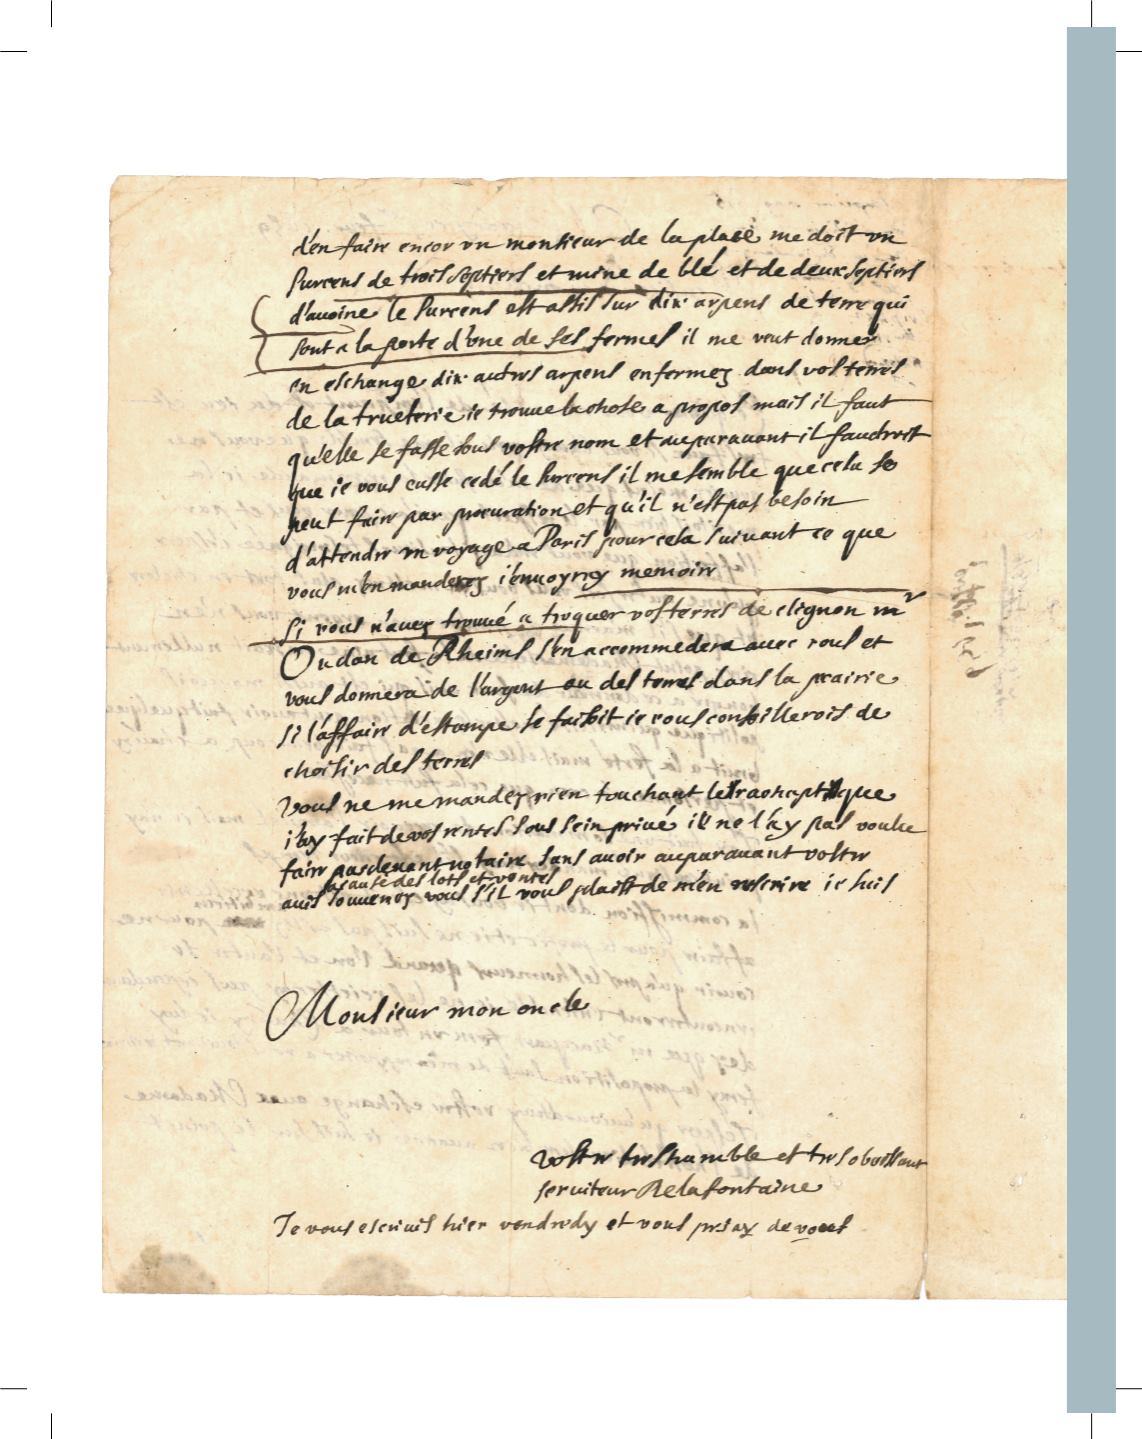 d'en faire encor vn monsieur de la place me doit vn
surcens de trois septiers et mine de blé et de deux septiers
d'auoine le surcens est assis sur dix arpens de terre qui
sont a la porte d'vne de ses fermes il me veut donner
en eschange dix autres arpens enfermez dans vos terres
de la trueterie ie trouue la chose a propos mais il faut
qu'elle se fasse sous vostre nom et auparauant il faudroit
que ie vous eusse cedé le surcens il me semble que cela se
peut faire par procuration et qu'il n'est pas besoin
d'attendre vn voyage a Paris pour cela suiuant ce que
vous m'en manderez i'enuoyray memoire
si vous n'auez trouué a troquer vos terres de clignon mr
Oudan de Rheims s'en accommodera auec vous et
vous donnera de l'argent ou des terres dans la prairie
si l'affaire d'estampe se faisoit ie vous conseillerois de
choisir des terres
Vous ne me mandez rien touchant le
i'ay fait de vos rentes sous sein priué ie ne l'ay pas voulu
faire pardeuant notaire sans auoir auparauant vostre
a cause des lots et ventes
auis souuenez vous s'il vous plaist de m'en rescrire ie suis
Monsieur mon oncle
vostre tres humble et tres obeissant
seruiteur Delafontaine
Je vous escriuis hier vendredy et vous priay de vous